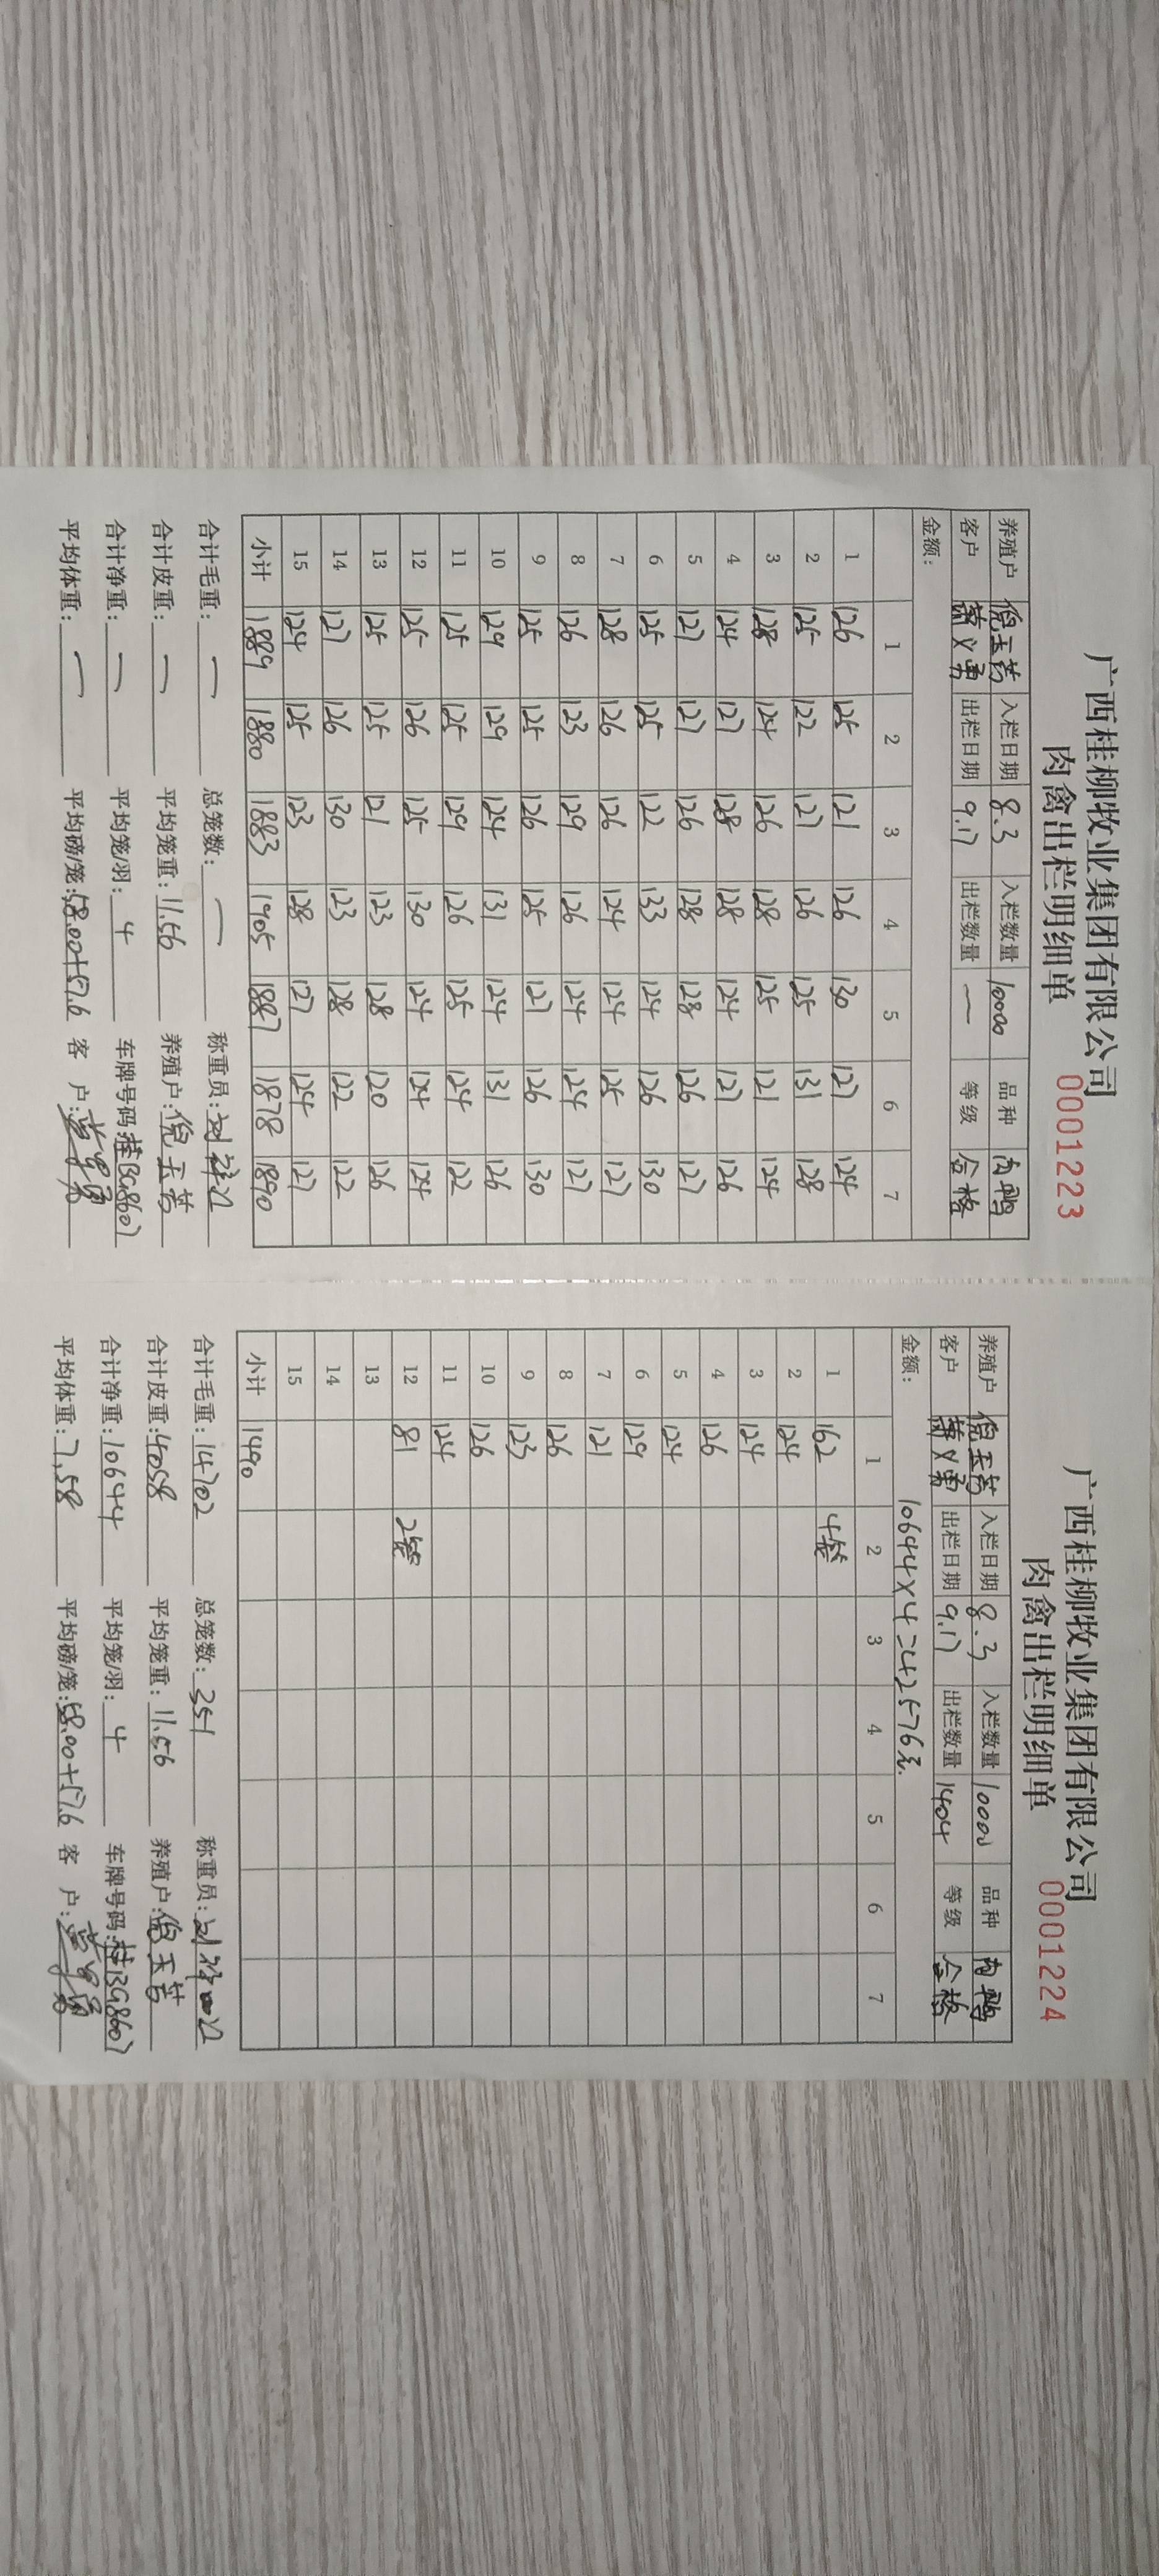 广西桂柳牧业集团有限公司
肉禽出栏明细单 0001223
养殖户 倪玉苦 入栏日期 8.3 入栏数量 10000 品种 肉鸭
客户 出栏日期 9.17 出栏数量 — 等级 合格
金额：
1 2 3 4 5 6 7
1 126 125 121 126 130 127 124
2 125 122 127 126 125 131 128
3 128 124 126 128 125 121 124
4 124 127 128 128 124 127 126
5 127 127 126 128 128 126 127
6 125 125 122 133 124 126 130
7 128 126 126 124 124 125 127
8 126 123 129 126 124 124 127
9 125 125 126 125 127 126 130
10 129 129 124 131 124 131 126
11 125 125 129 126 125 124 122
12 125 126 125 130 124 124 124
13 125 125 121 123 128 120 126
14 127 126 130 123 128 122 122
15 124 125 123 128 127 124 127
小计 1889 1880 1883 1905 1887 1878 1890
合计毛重： — 总笼数： — 称重员：
合计皮重： — 平均笼重：11.56 养殖户：倪玉苦
合计净重： — 平均笼/羽：4 车牌号码：桂BG8607
平均体重： — 平均磅/笼：58.00+57.6 客 户：
广西桂柳牧业集团有限公司
肉禽出栏明细单 0001224
养殖户 倪玉苦 入栏日期 8.3 入栏数量 10000 品种 肉鸭
客户 出栏日期 9.17 出栏数量 1404 等级 合格
金额： 10644×4=42576元.
1 2 3 4 5 6 7
1 162 4笼
2 124
3 124
4 126
5 124
6 129
7 121
8 126
9 123
10 126
11 124
12 81 2笼
13
14
15
小计 1490
合计毛重：14702 总笼数：351 称重员：
合计皮重：4058 平均笼重：11.56 养殖户：倪玉苦
合计净重：10644 平均笼/羽：4 车牌号码：桂BG8607
平均体重：7.58 平均磅/笼：58.00+57.6 客 户：